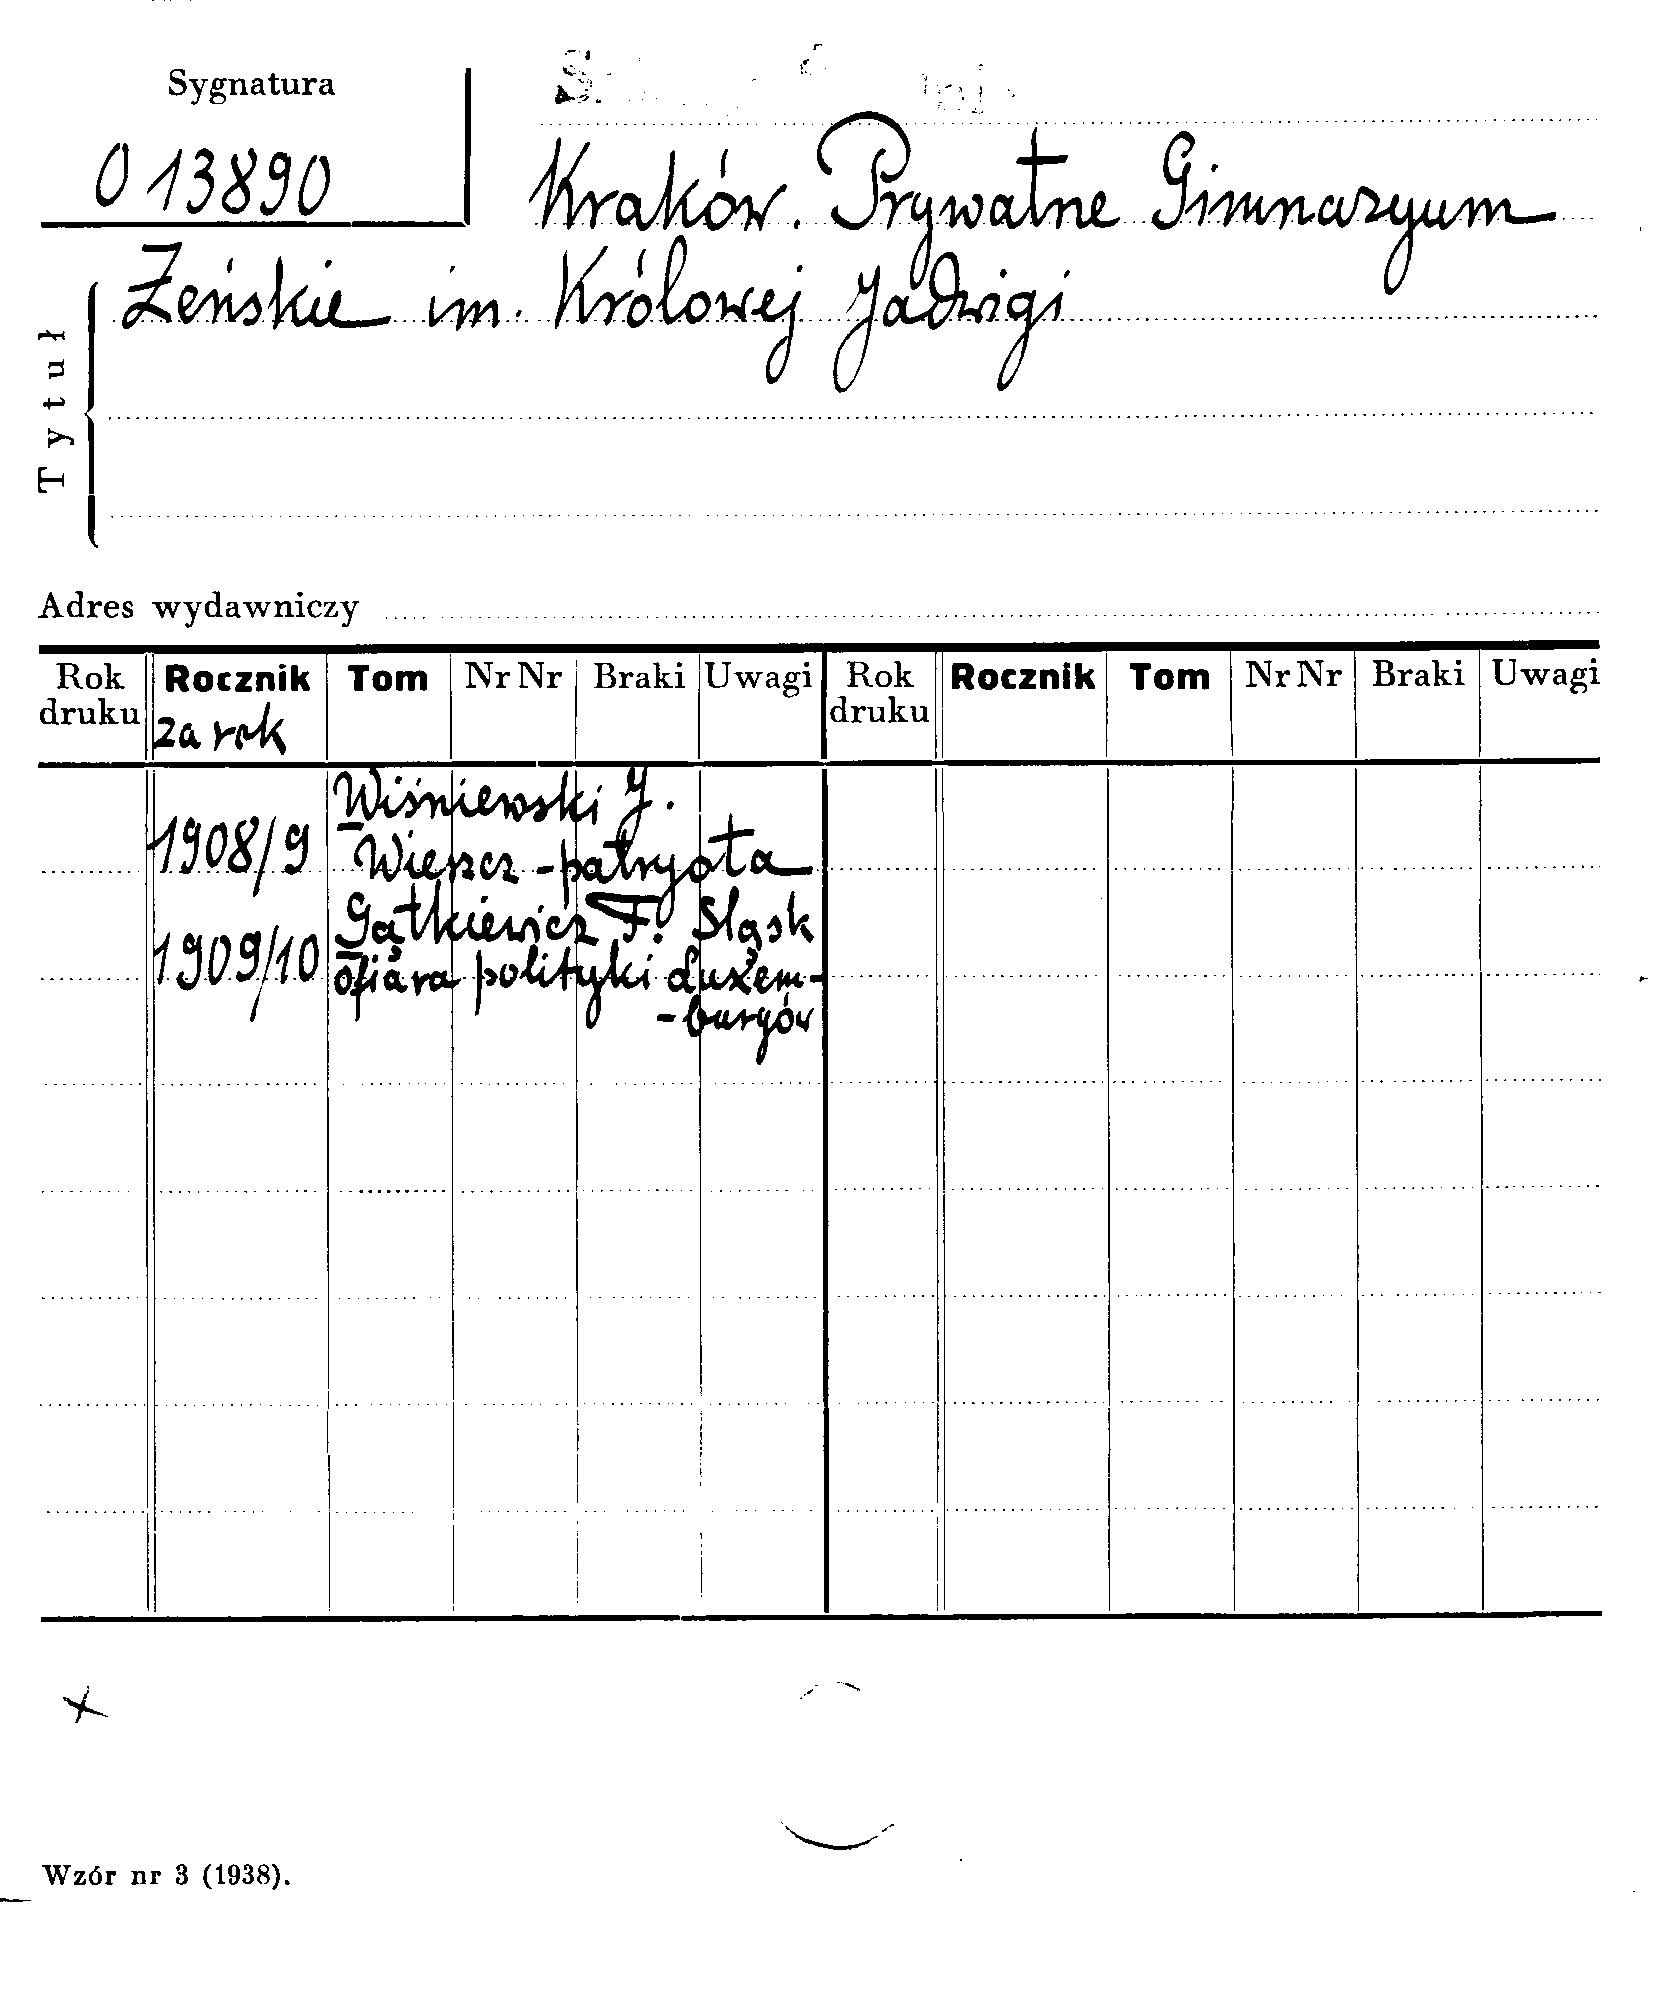 Sygnatura
0 13890
Kraków. Prywatne Gimnazyum
Żeńskie im. Królowej Jadwigi
Tytuł
Adres wydawniczy
Rok druku Rocznik Tom Nr Nr Braki Uwagi Rok druku Rocznik Tom Nr Nr Braki Uwagi
za rok
Wiśniewski J.
1908/9 Wieszcz - patryota
Gątkiewicz F. Śląsk
1909/10 ofiara polityki Luxem-
-burgów
Wzór nr 3 (1938).